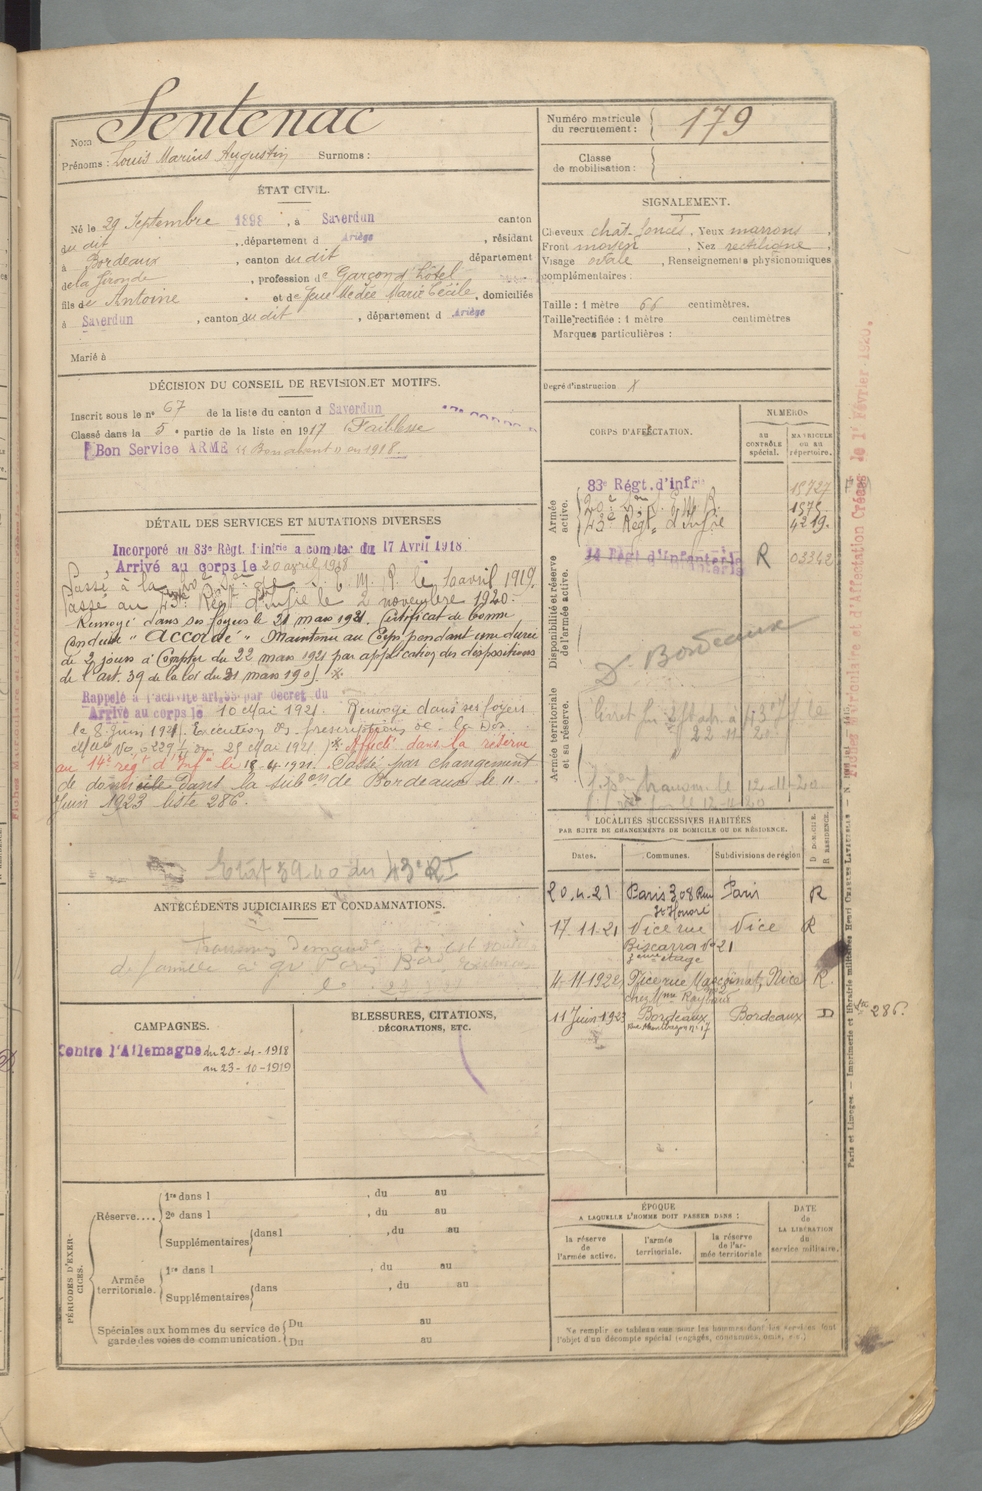 Nom Sentenac
Prénoms : Louis Marius Augustin Surnoms :
Numéro matricule du recrutement : 179
Classe de mobilisation :
ÉTAT CIVIL.
Né le 29 Septembre 1898, à Saverdun canton
du dit, département d Ariège, résidant
à Bordeaux, canton du dit département
de la Gironde, profession de Garçon d'hôtel
fils de Antoine et de Marie Cécile, domiciliés
à Saverdun, canton du dit, département d Ariège
Marié à
SIGNALEMENT.
Cheveux chât. foncés, Yeux marrons,
Front moyen, Nez rectiligne,
Visage ovale, Renseignements physionomiques
complémentaires :
Taille : 1 mètre 66 centimètres.
Taille rectifiée : 1 mètre centimètres
Marques particulières :
Degré d'instruction X
DÉCISION DU CONSEIL DE REVISION ET MOTIFS.
Inscrit sous le n° 67 de la liste du canton d Saverdun
Classé dans la 5e partie de la liste en 1917 (Faiblesse
Bon Service ARMÉ "Bon absent" en 1918.
DÉTAIL DES SERVICES ET MUTATIONS DIVERSES
Incorporé au 83e Régt. d'infie a compter du 17 Avril 1918
Arrivé au corps le 20 avril 1918
Passé à la 20e de S. E. M. R. le 10 avril 1919.
Passé au 43e Régt d'Infie le 2 novembre 1920.
Renvoyé dans ses foyers le 21 mars 1921. Certificat de bonne
Conduite "ACCORDÉ". Maintenu au Corps pendant une durée
de 2 jours à Compter du 22 mars 1921 par application des dispositions
de l'art. 39 de la loi du 21 mars 1905. X
Rappelé à l'activité art. 33 par décret du
Arrivé au corps le 10 Mai 1921. Renvoyé dans ses foyers
le 8 juin 1921. Exécution des prescriptions de la Don
Mlle No 6229 du 28 Mai 1921. X Affecté dans la réserve
au 14e régt d'Infie le 18.4.1921. Passé par changement
de domicile dans la subon de Bordeaux le 11
Juin 1923 liste 286.
Etat 3900 du 43e RI
CORPS D'AFFECTATION.
NUMÉROS
AU CONTRÔLE spécial.
MATRICULE OU AU répertoire.
Armée active.
83e Régt. d'infie 15727
20e S. E. M. R. 1575
43e Régt d'Infie 4219.
Disponibilité et réserve de l'armée active.
14 Régt d'infanterie R 03342
Dn Bordeaux
Armée territoriale et sa réserve.
22 11 20
transm. le 12-11-20
LOCALITÉS SUCCESSIVES HABITÉES
PAR SUITE DE CHANGEMENTS DE DOMICILE OU DE RÉSIDENCE.
Dates. Communes. Subdivisions de région D DOMICILE. R RÉSIDENCE.
20.4.21 Paris 308 Rue St Honoré Paris R
17-11-21 Nice rue Biscarra No 21 3ème étage Nice R
4-11-1922 Nice rue chez Mme Nice R
11 Juin 1923 Bordeaux No 17 Bordeaux D
286.
ANTÉCÉDENTS JUDICIAIRES ET CONDAMNATIONS.
CAMPAGNES.
Contre l'Allemagne du 20-4-1918
au 23-10-1919
BLESSURES, CITATIONS,
DÉCORATIONS, ETC.
PÉRIODES D'EXERCICES.
Réserve....
1re dans l , du au
2e dans l , du au
Supplémentaires dans l , du au
Armée territoriale.
1re dans l , du au
Supplémentaires dans , du au
Spéciales aux hommes du service de garde des voies de communication.
Du au
Du au
ÉPOQUE
A LAQUELLE L'HOMME DOIT PASSER DANS :
la réserve de l'armée active.
l'armée territoriale.
la réserve de l'armée territoriale
DATE de LA LIBÉRATION du service militaire.
Ne remplir ce tableau que pour les hommes dont les services font
l'objet d'un décompte spécial (engagés, condamnés, omis, etc.)
Fiches Matriculaire et d'Affectation Créées le 1er Février 1925.
Paris et Limoges. — Imprimerie et librairie militaires Henri CHARLES-LAVAUZELLE